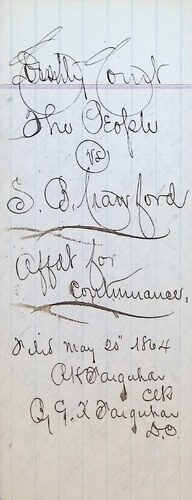 County Court
The People
vs
S. B. Crawford
Affdt for
Continuance.
Filed May 20" 1864
A H Farquhar
Clk
By G. F. Farquhar
D.C.